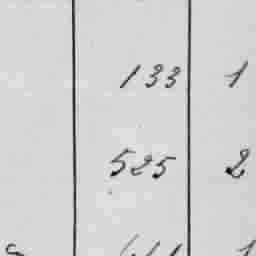 133 1
525 2